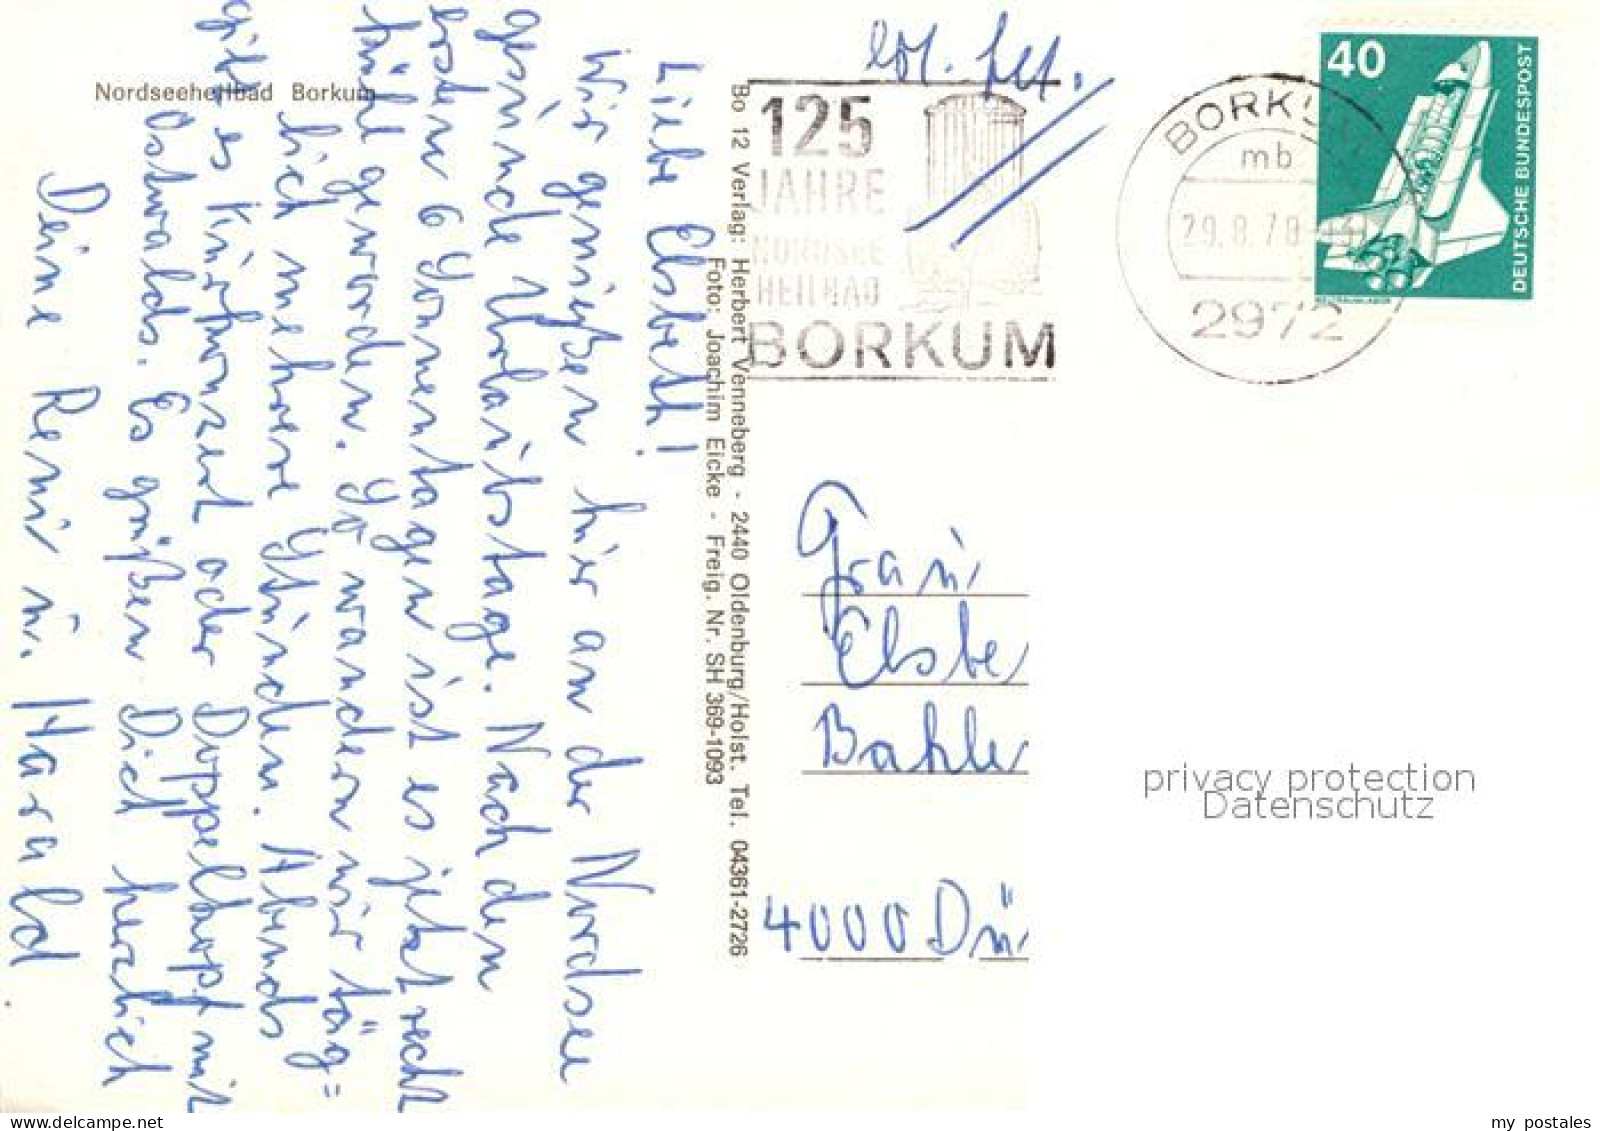 Nordseeheilbad Borkum
Liebe Elsbeth!
Wir genießen hier an der Nordsee
gesunde Urlaubstage. Nach den
ersten 6 Sonnentagen ist es jetzt recht
kühl geworden. So wandern wir täg=
lich mehrere Stunden. Abends
gibt es Kurkonzert oder Doppelkopf mit
Ostwalds. Es grüßen Dich herzlich
Deine Remi u. Harald.
Bo 12 Verlag: Herbert Venneberg - 2440 Oldenburg/Holst. Tel. 04361-2726
Foto: Joachim Eicke - Freig. Nr. SH 369-1093
125
JAHRE
NORDSEE
HEILBAD
BORKUM
BORKUM
mb
29.8.78
2972
40
DEUTSCHE BUNDESPOST
Frau
Elsbe
Bahle
4000 Dü
privacy protection
Datenschutz
my postales
www.delcampe.net